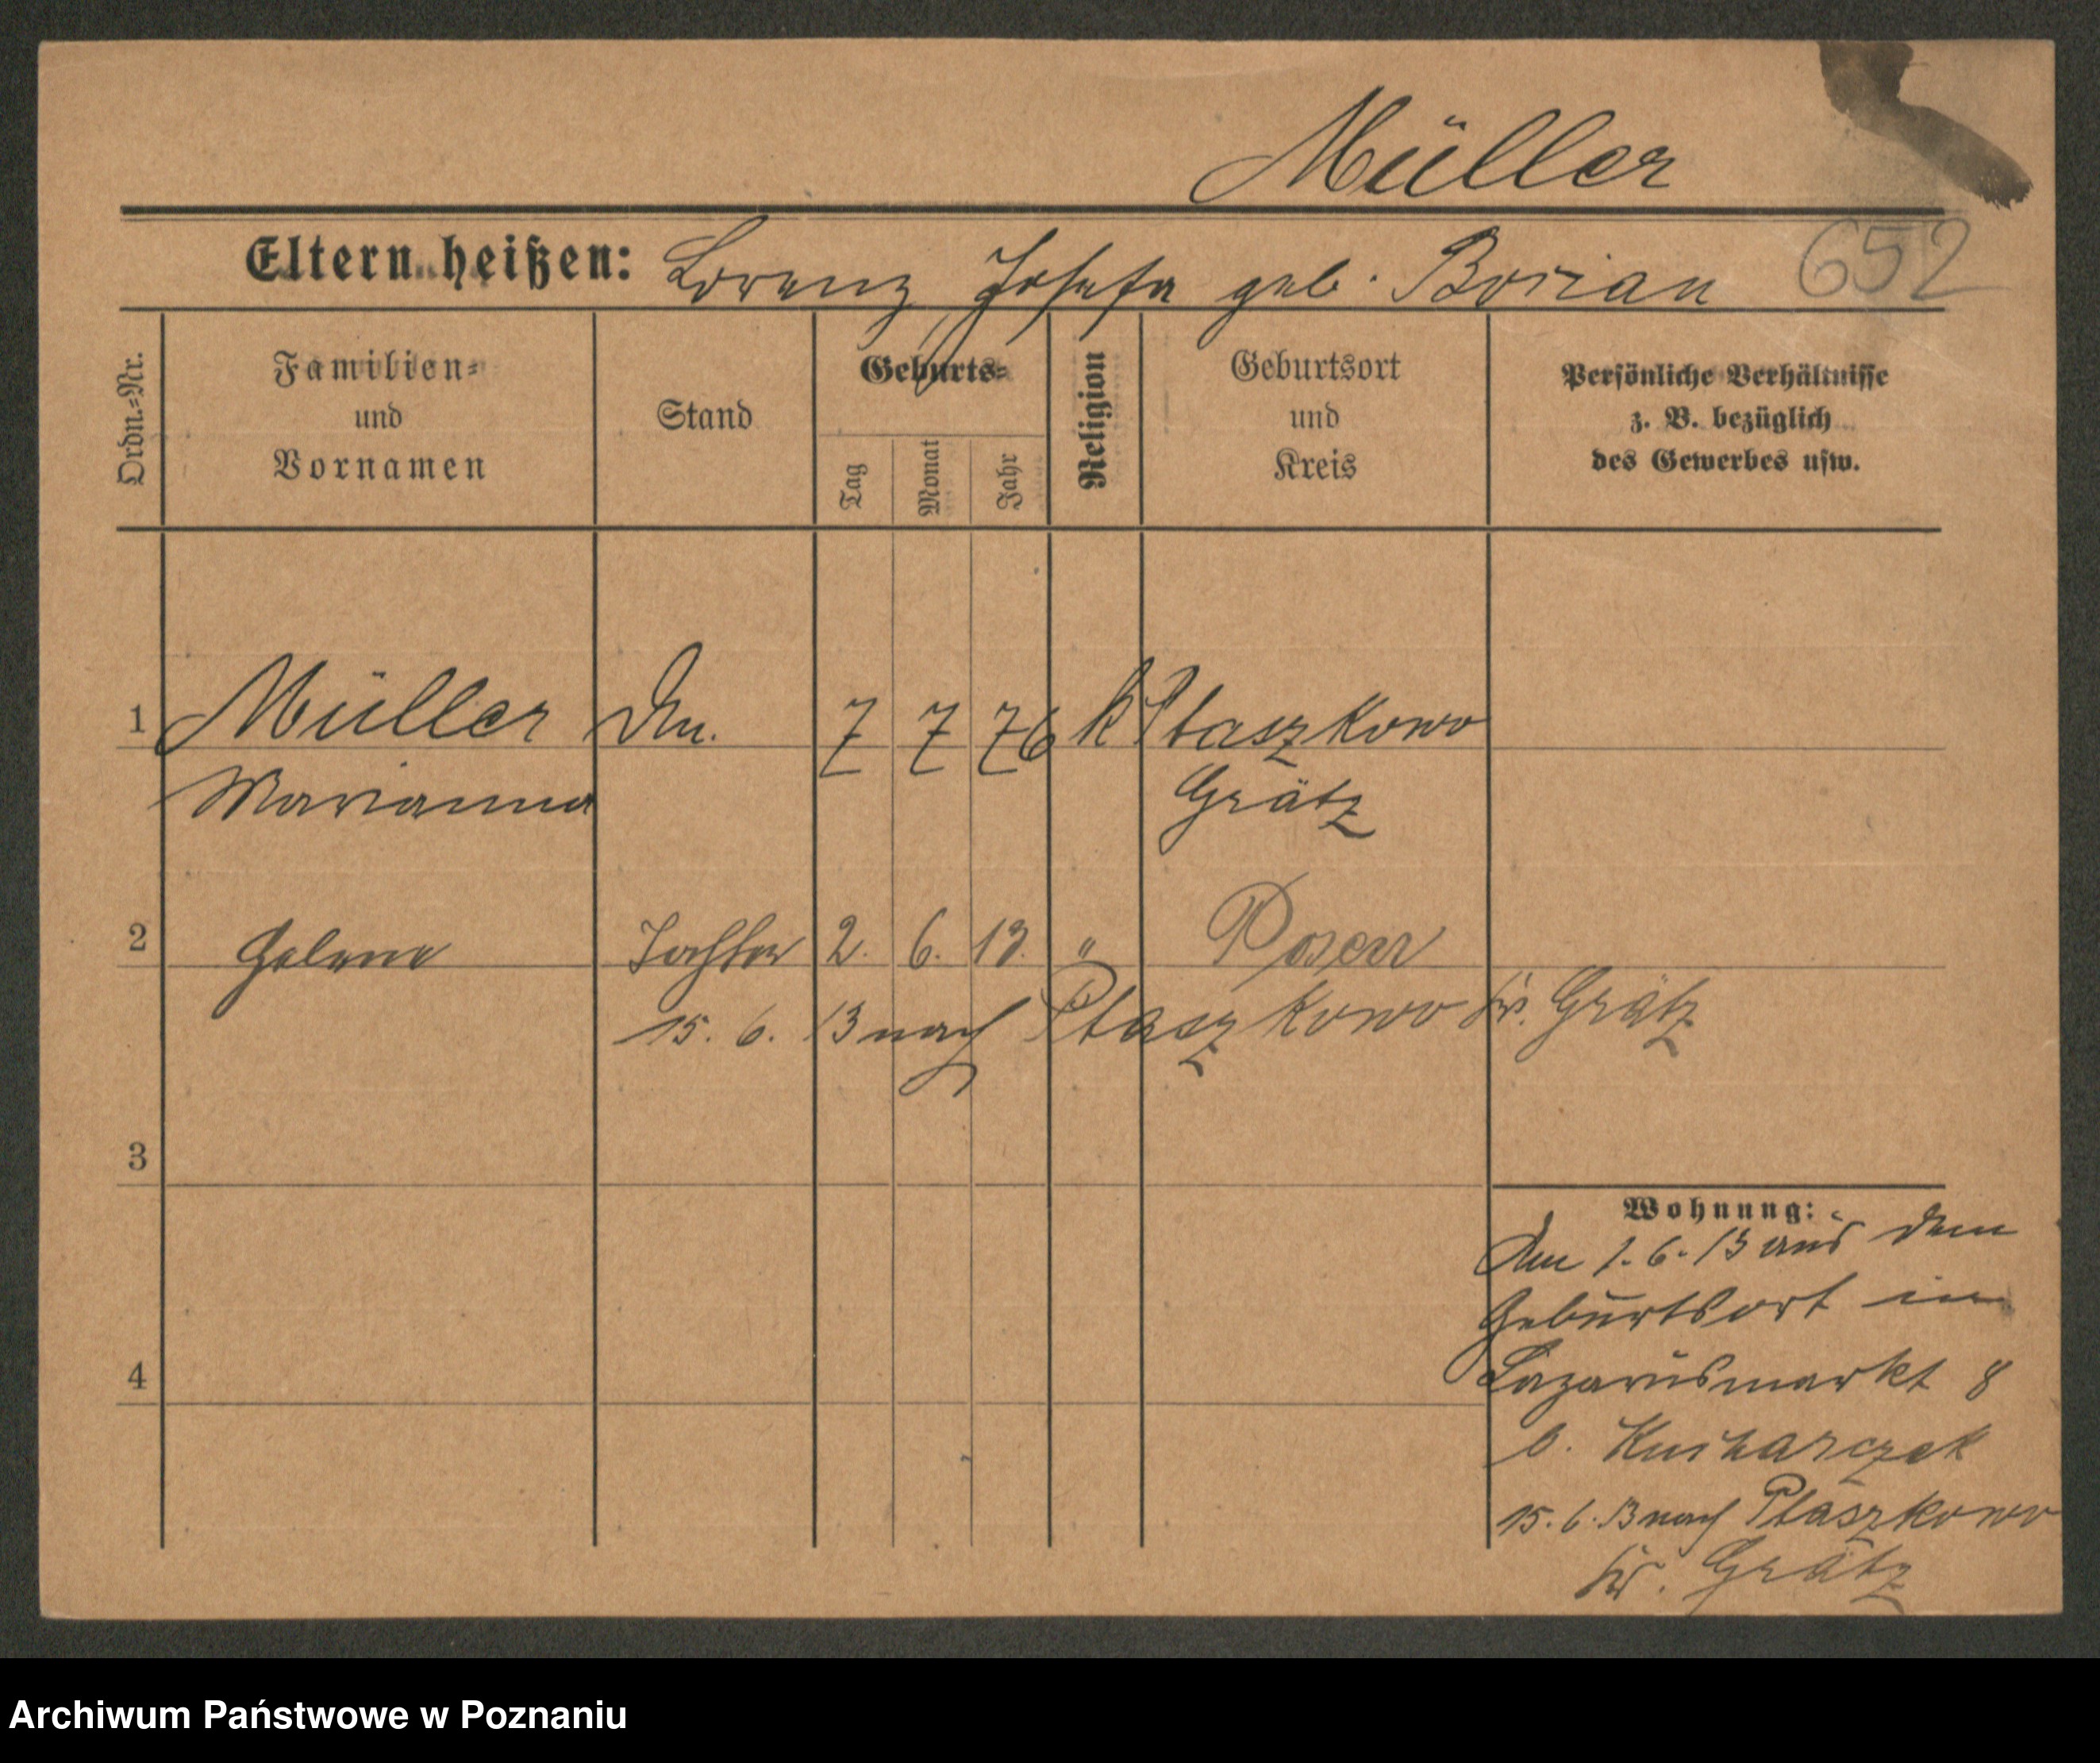 Müller
Eltern heißen: Lorenz, Josefa geb. Borian 652
Ordn.=Nr. Familien= und Vornamen Stand Geburts= Tag Monat Jahr Religion Geburtsort und Kreis Persönliche Verhältnisse z. B. bezüglich des Gewerbes usw.
1 Müller 7 7 76 k Ptaszkowo
Marianna Grätz
2 Helene Tochter 2. 6. 13. " Posen
15. 6. 13 nach Ptaszkowo Kr. Grätz
3
Wohnung:
1. 6. 13 aus dem
Geburtsort in
4
Lazarusmarkt 8
b. Kucharczak
15. 6. 13 nach Ptaszkowo
Kr. Grätz
Archiwum Państwowe w Poznaniu